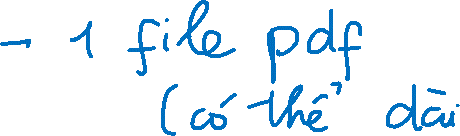 - 1 file pdf
(có thể dài